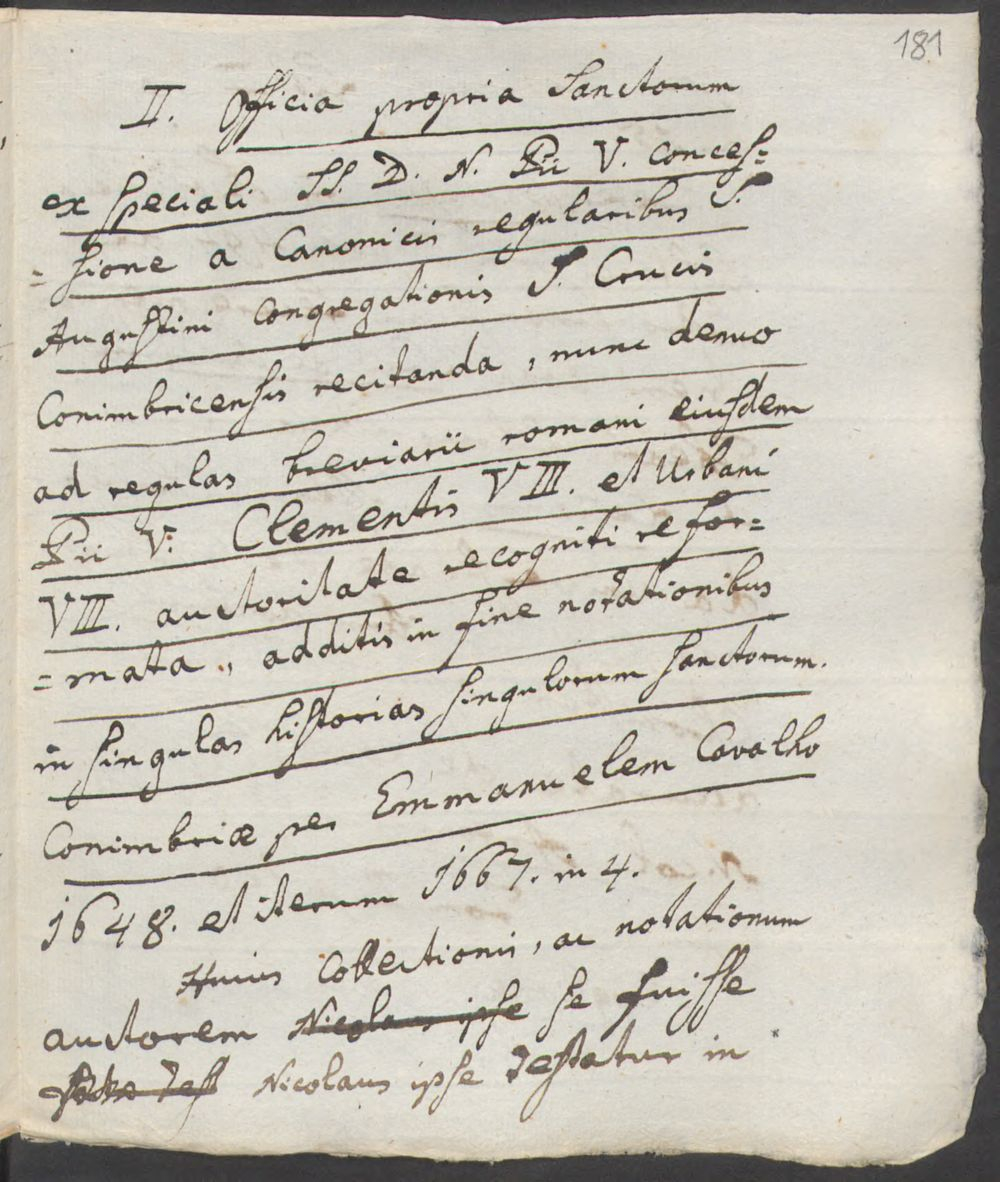 181
II. Officia propria Sanctorum
ex speciali SS. D. N. Pii V. conces=
=sione a Canonicis regularibus S.
Augustini congregationis S. Crucis
Conimbricensis recitanda, nunc denuo
ad regulas breviarii romani eiusdem
Pii V. Clementis VIII. et Urbani
VIII. auctoritate recogniti refor=
=mata, additis in fine notationibus
in singulas historias singulorum sanctorum.
Conimbriæ per Emmanuelem Cavalho
1648. et iterum 1667. in 4.
Huius collectionis, ac notationum
auctorem Nicolaus ipse se fuisse
test Nicolaus ipse testatur in